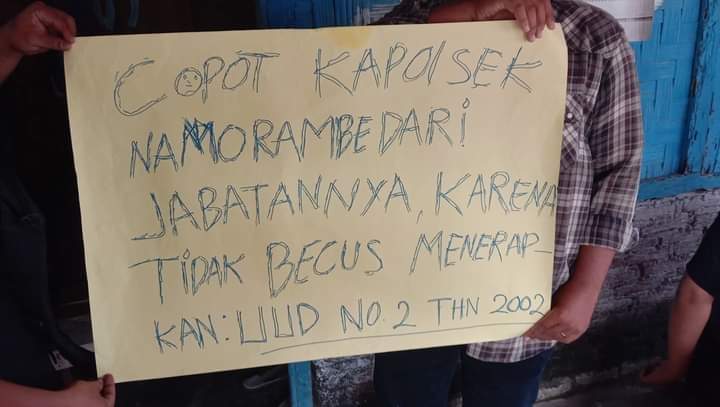 COPOT KAPOLSEK
NAMORAMBE DARI
JABATANNYA, KARENA
TIDAK BECUS MENERAP-
KAN: UUD NO. 2 THN 2002